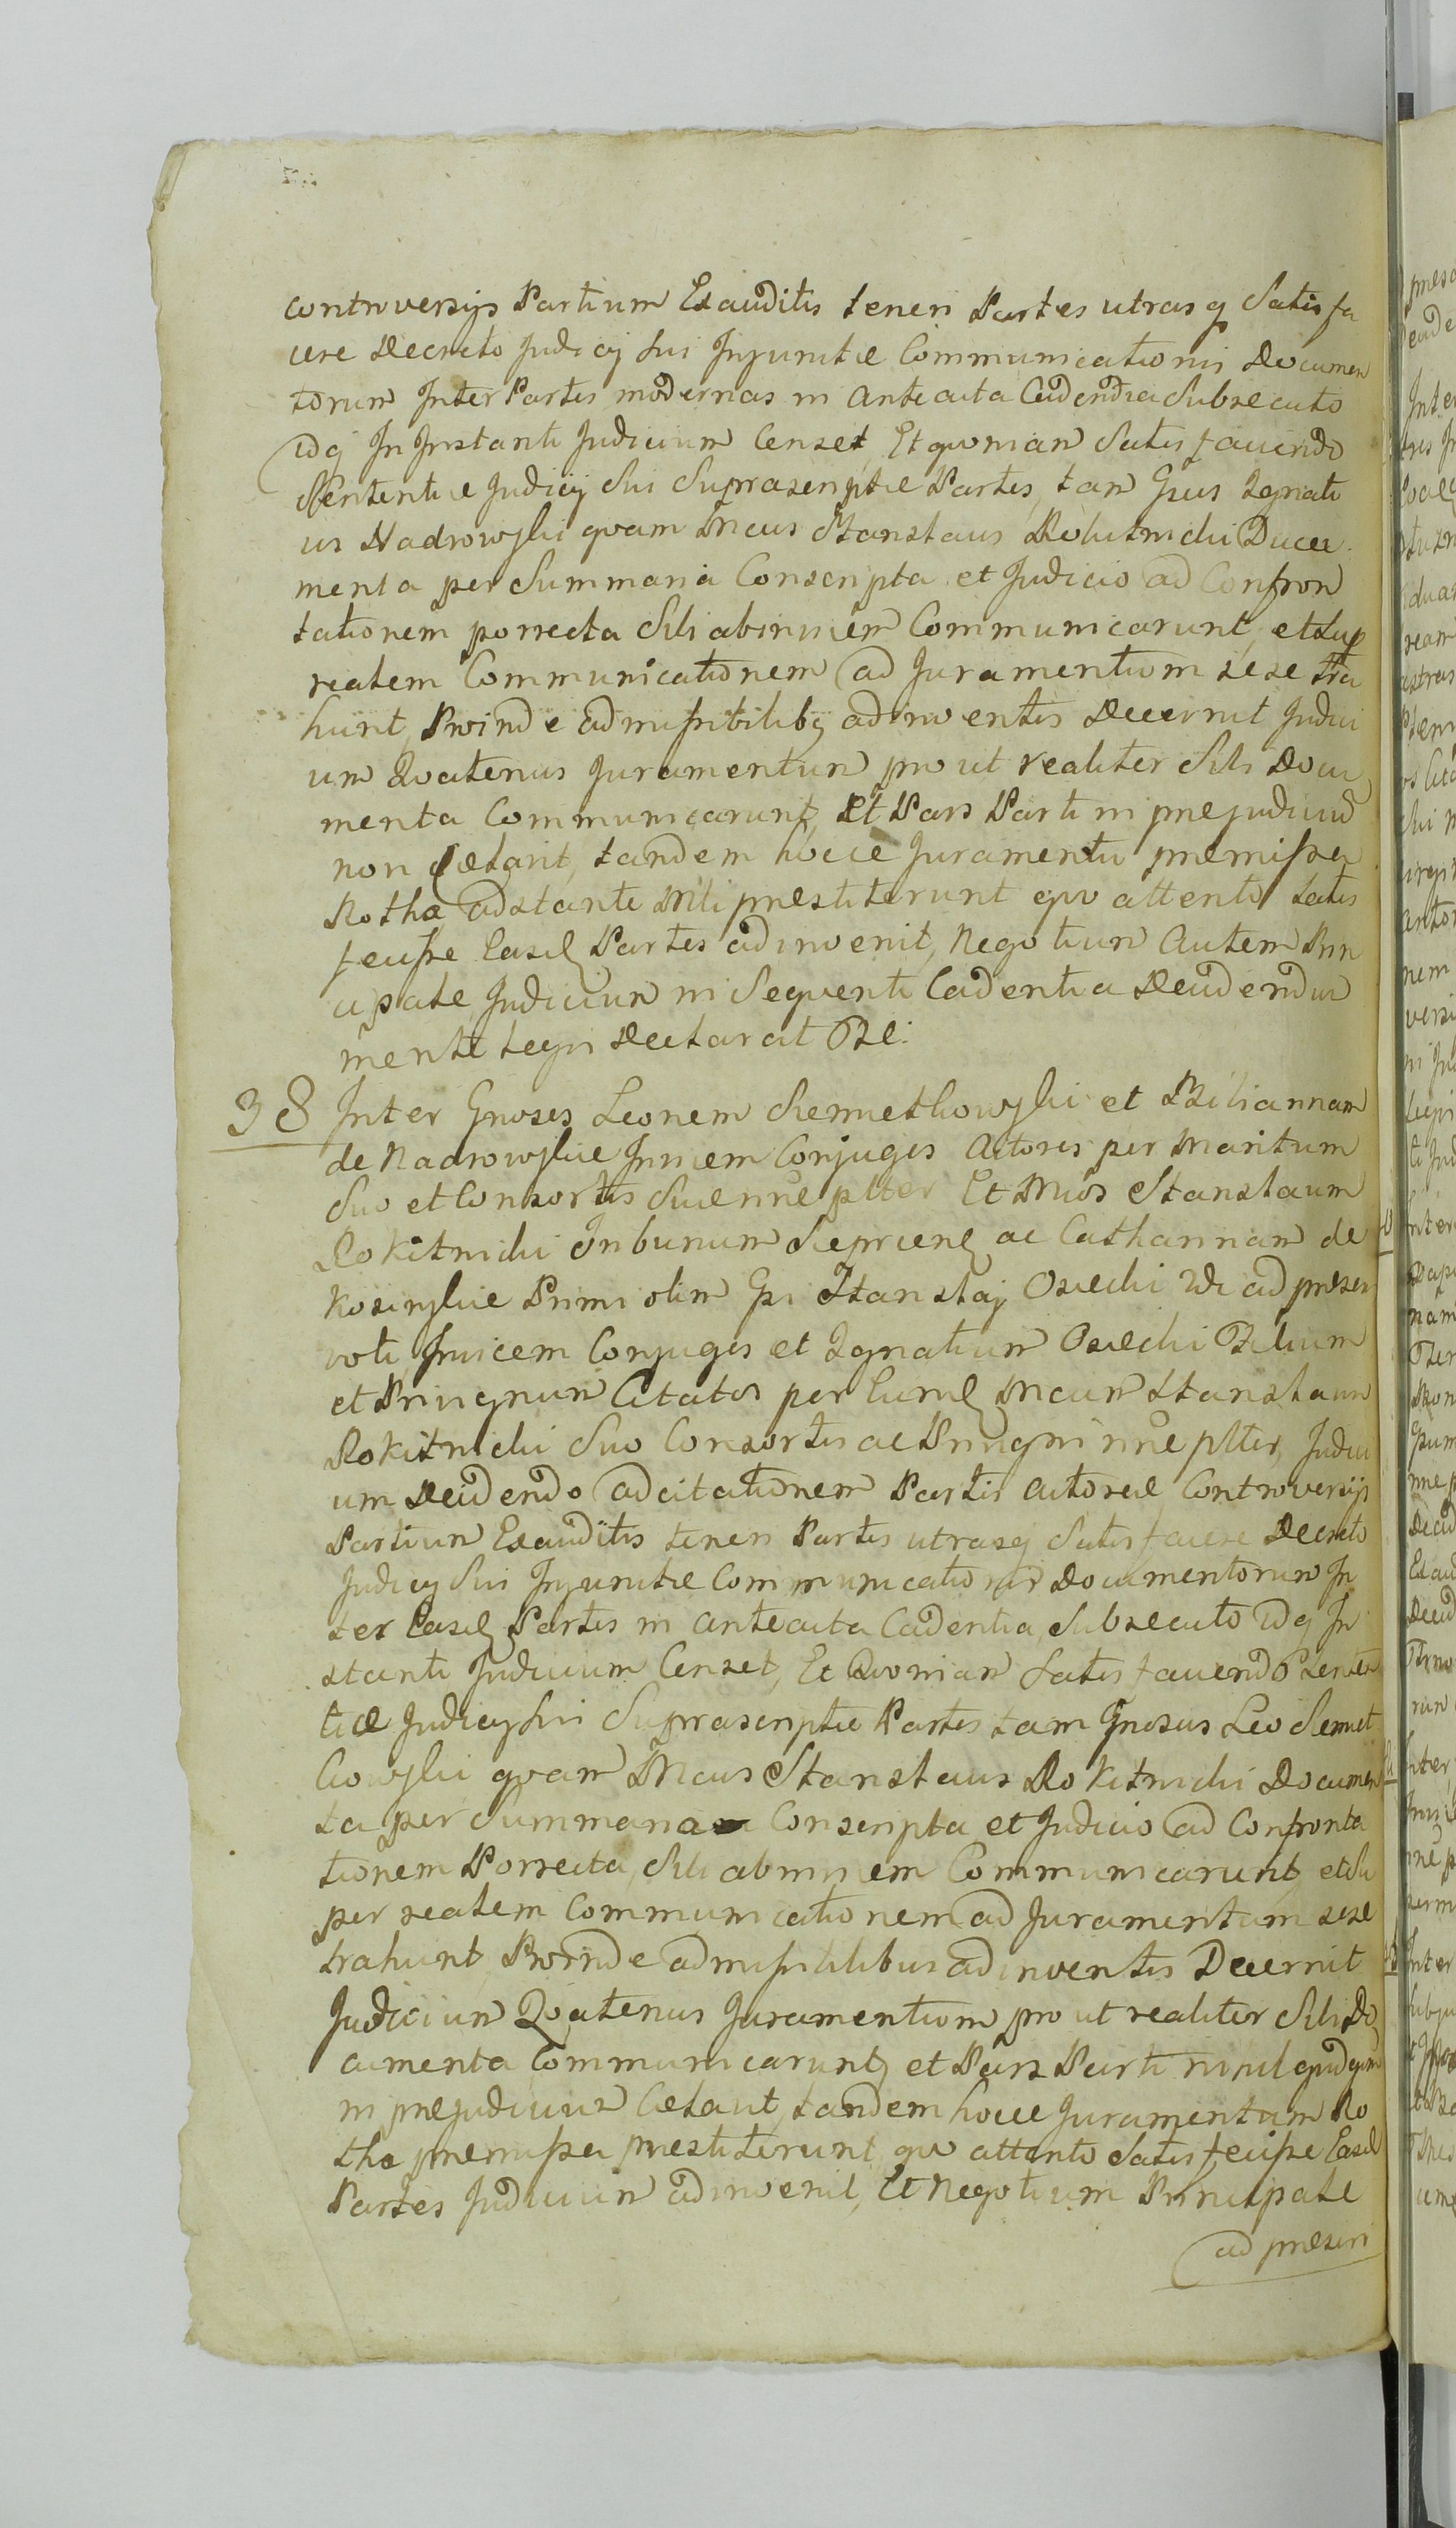 controversijs Partium Exauditis teneri Partes utrasq Satisfa
cere Decreto Judicij sui Injunctæ Communicationis Documen
torum Inter Partes modernas in anteacta Cadentia Subsecuto
idq In Instanti Judicium Censet, Et quoniam Satisfaciendo
Sententiæ Judicij Sui Suprascriptæ Partes, tam Gsus Ignati
us Nadrowski quam Mcus Stanislaus Rokitnicki Docu
menta per Summaria Conscripta et Judicio ad Confron
tationem porrecta Sibi abinvicem Communicarunt, et sup
realem Communicationem ad Juramentum sese tra
hunt, Proinde admissibilibq adinventis Decernit Judici
um Quatenus Juramentum pro ut realiter Sibi Docu
menta Communicarunt, Et Pars Parti in præjudiciū
non Celavit, tandem hocce Juramentū præmissa
Rotha adstante Mlti præstiterunt quo attento satis
fecisse Easd Partes adinvenit, Negotium Autem Prin
cipale Judicium in Sequenti Cadentia Decidendū
mente legis Declarat Pze:
38 Inter Gnosos Leonem Siemiethowski et Bibiannam
de Nadrowskie Invicem Conjuges Actores per Maritum
Suo et Consortis Suæ nne plter Et Mcos Stanislaum
Rokitnicki Tribunum Sieprcens ac Catharinam de
Kosinskie Primi olim Gsi Stanislaj Osiecki Vdi ad præsen
voti Invicem Conjuges et Ignatium Osiecki Filium
et Privignum Citatos per eund Mcum Stanislaum
Rokitnicki Suo Consortis ac Privigni nne plter, Judici
um Decidendo ad citationem Partis actoreæ Controversijs
Partium Exauditis teneri Partes utrasq Satisfacere Decreto
Judicij Sui Injunctæ Communicationis Documentorum In
ter Easd Partes in anteacta Cadentia, Subsecuto idq In
stanti Judicium Censet, Et Quoniam Satisfaciendo Senten
tiæ Judicij Sui Suprascriptæ Partes tam Gnosus Leo Siemiet
kowski quam Mcus Stanislaus Rokitnicki Documen
ta per Summaria Conscripta et Judicio ad Confronta
tionem Porrecta, Sibi abinvicem Communicarunt, et Su
per realem Communicationem ad Juramentum sese
trahunt Proinde admissibilibus adinventis Decernit
Judicium Quatenus Juramentum pro ut realiter Sibi Do
cumenta Communicarunt, et Pars Parti nihil quidquam
in præjudicium Celavit, tandem hocce Juramentum Ro
tha præmissa præstiterunt, quo attento Satisfecisse Easd
Partes Judicium adinvenit, Et Negotium Principale
ad præsens